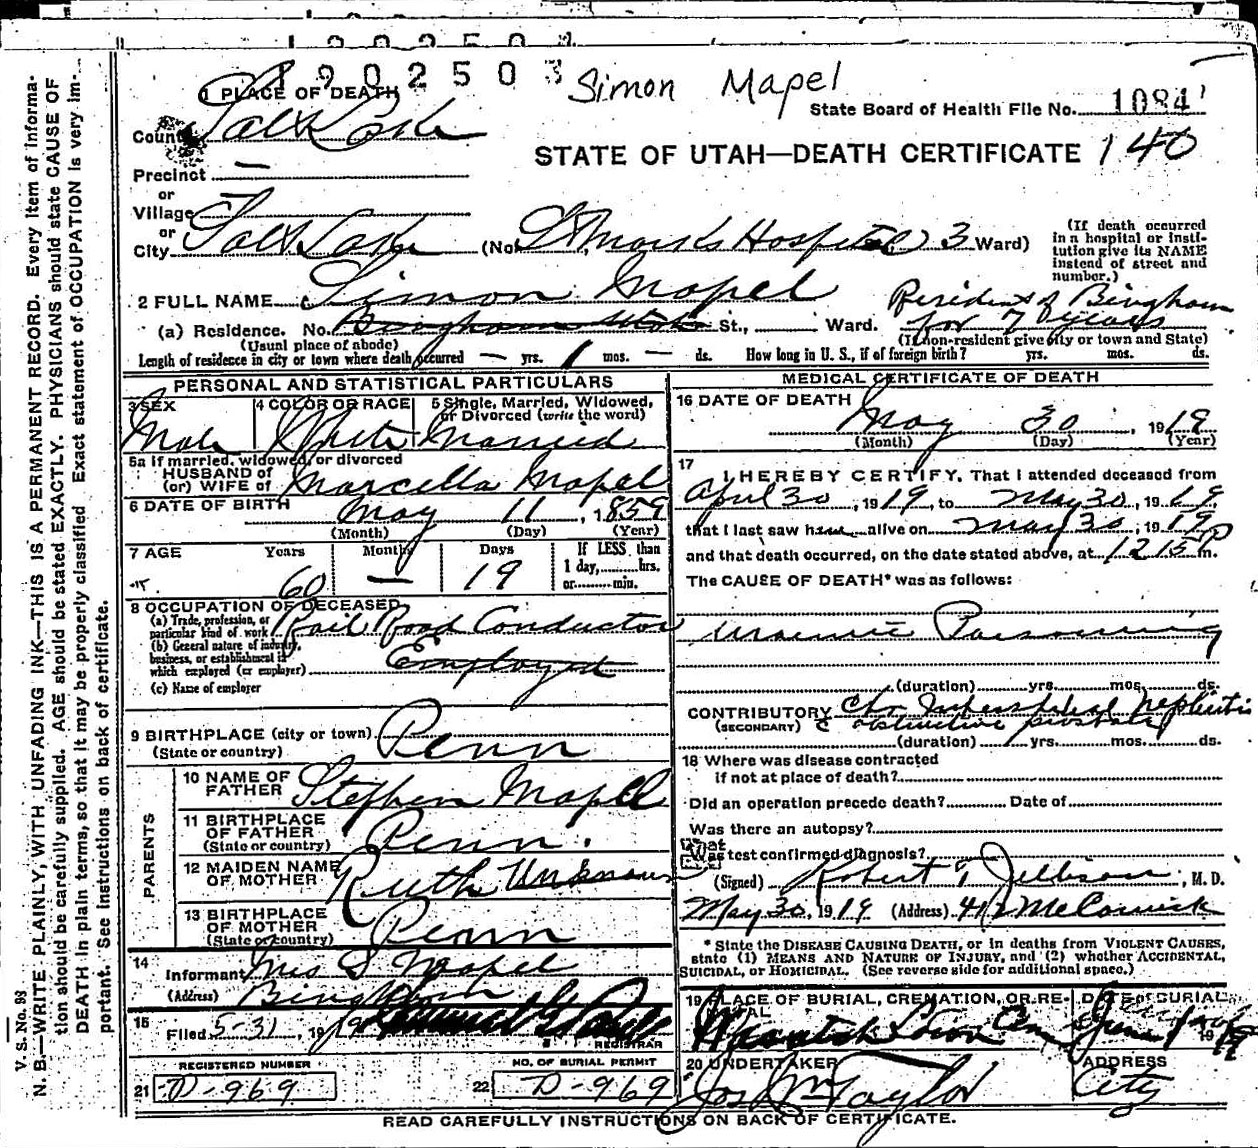 1902503
Simon Mapel
State Board of Health File No. 1084
STATE OF UTAH—DEATH CERTIFICATE 140
1 PLACE OF DEATH
County Salt Lake
Precinct —
or
Village —
or
City Salt Lake (No. St Marks Hospital 3 Ward)
(If death occurred in a hospital or institution give its NAME instead of street and number.)
2 FULL NAME Simon Mapel
Resident of Bingham for 7 years
(a) Residence. No. Bingham Utah St., Ward.
(Usual place of abode) (If non-resident give city or town and State)
Length of residence in city or town where death occurred — yrs. 1 mos. — ds. How long in U. S., if of foreign birth? yrs. mos. ds.
PERSONAL AND STATISTICAL PARTICULARS
3 SEX Male
4 COLOR OR RACE White
5 Single, Married, Widowed, or Divorced (write the word) Married
5a If married, widowed, or divorced
HUSBAND of
(or) WIFE of Marcella Mapel
6 DATE OF BIRTH May 11, 1859
(Month) (Day) (Year)
7 AGE Years Months Days If LESS than
60 — 19 1 day, hrs.
or min.
8 OCCUPATION OF DECEASED
(a) Trade, profession, or particular kind of work Rail Road Conductor
(b) General nature of industry, business, or establishment in which employed (or employer) Employed
(c) Name of employer
9 BIRTHPLACE (city or town) Penn
(State or country)
PARENTS
10 NAME OF FATHER Stephen Mapel
11 BIRTHPLACE OF FATHER Penn.
(State or country)
12 MAIDEN NAME OF MOTHER Ruth Unknown
13 BIRTHPLACE OF MOTHER Penn
(State or country)
14 Informant Mrs S Mapel
(Address) Bingham
15 Filed 5-31, 1919
REGISTRAR
REGISTERED NUMBER
21 D-969
NO. OF BURIAL PERMIT
22 D-969
MEDICAL CERTIFICATE OF DEATH
16 DATE OF DEATH May 30, 1919
(Month) (Day) (Year)
17 I HEREBY CERTIFY, That I attended deceased from
April 30, 1919, to May 30, 1919
that I last saw him alive on May 30, 1919
and that death occurred, on the date stated above, at 1215 P m.
The CAUSE OF DEATH* was as follows:
Uraemic Poisoning
(duration) yrs. mos. ds.
CONTRIBUTORY Chr Interstitial Nephritis
(SECONDARY) c obstructive prostate
(duration) yrs. mos. ds.
18 Where was disease contracted
if not at place of death?
Did an operation precede death? Date of
Was there an autopsy?
What test confirmed diagnosis?
(Signed) Robert T Jellison, M. D.
May 30, 1919 (Address) 412 McCornick
* State the DISEASE CAUSING DEATH, or in deaths from VIOLENT CAUSES,
state (1) MEANS AND NATURE OF INJURY, and (2) whether ACCIDENTAL,
SUICIDAL, or HOMICIDAL. (See reverse side for additional space.)
19 PLACE OF BURIAL, CREMATION, OR REMOVAL
DATE OF BURIAL
June 1 1919
20 UNDERTAKER Jos Wm Taylor
ADDRESS City
READ CAREFULLY INSTRUCTIONS ON BACK OF CERTIFICATE.
V. S. No. 99
N. B.—WRITE PLAINLY, WITH UNFADING INK—THIS IS A PERMANENT RECORD. Every item of informa-
tion should be carefully supplied. AGE should be stated EXACTLY. PHYSICIANS should state CAUSE OF
DEATH in plain terms, so that it may be properly classified. Exact statement of OCCUPATION is very im-
portant. See instructions on back of certificate.